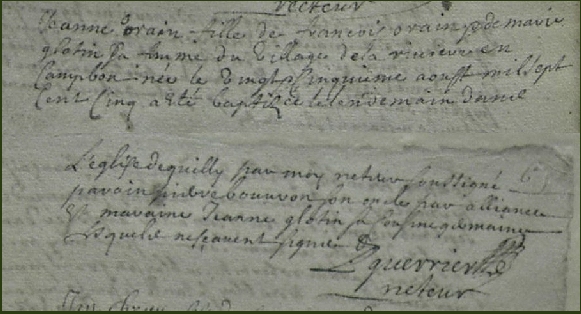 recteur
Jeanne orain fille de francois orain & de marie
glotin sa femme du village de la riviere en
Campbon nee le vingt & cinquieme aoust mil sept
Cent Cinq a eté baptisée le lendemain dans
L'eglise de quilly par moy recteur soussigné
parain pierre bouvron son oncle par alliance
& maraine Jeanne glotin sa cousine germaine
lesquels ne scavent signer
guerrier
recteur